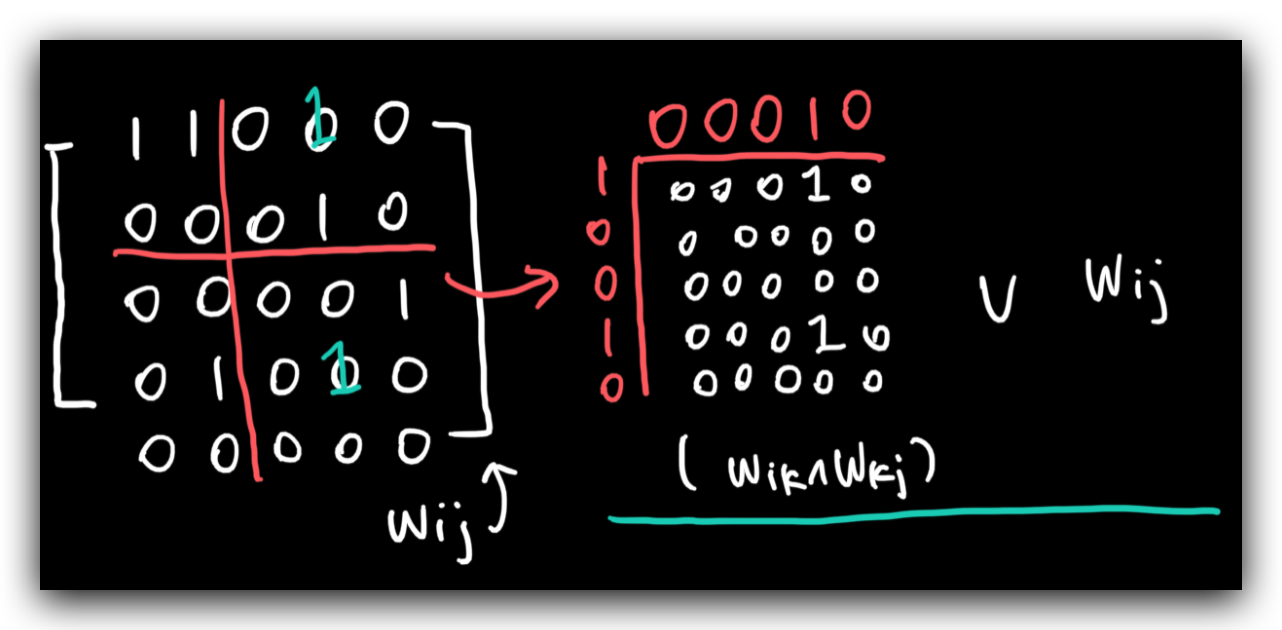 1 1 0 1 0
0 0 0 1 0
0 0 0 0 1
0 1 0 1 0
0 0 0 0 0
Wij
0 0 0 1 0
1 0 0 0 1 0
0 0 0 0 0 0
0 0 0 0 0 0
1 0 0 0 1 0
0 0 0 0 0 0
(Wik∧Wkj)
∨ Wij